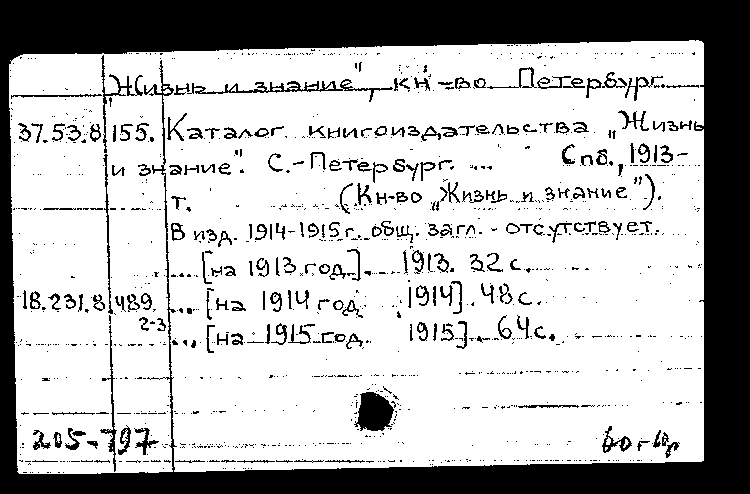 „Жизнь и знание", кн-во. Петербург.
37.53.8.155. Каталог книгоиздательства „Жизнь
и знание". С.-Петербург. ... Спб., 1913-
т. (Кн-во „Жизнь и знание").
В изд. 1914-1915 г. общ. загл. - отсутствует.
... [на 1913 год]. 1913. 32 с.
18.231.8.489 ... [на 1914 год. 1914]. 48 с.
2-3 ... [на 1915 год. 1915]. 64 с.
205-797